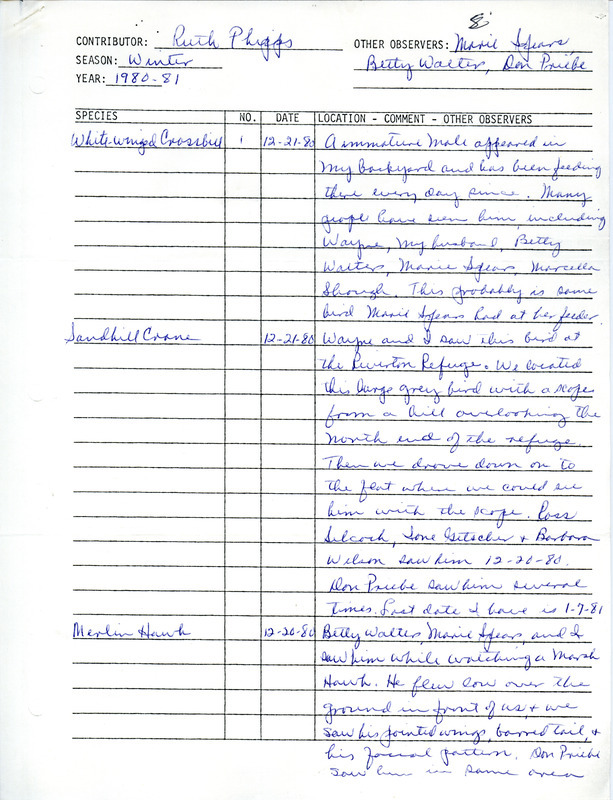 8
CONTRIBUTOR: Ruth Phipps OTHER OBSERVERS: Marie Spears,
SEASON: Winter Betty Walter, Don Priebe
YEAR: 1980-81
SPECIES NO. DATE LOCATION - COMMENT - OTHER OBSERVERS
White-winged Crossbill 1 12-21-80 A immature male appeared in
my backyard and has been feeding
there every day since. Many
people have seen him, including
Wayne, my husband, Betty
Walters, Marie Spears, Marcella
This probably is same
bird Marie Spears had at her feeder.
Sandhill Crane 12-21-80 Wayne and I saw this bird at
the Riverton Refuge. We located
this large grey bird with a scope
from a hill overlooking the
North end of the refuge.
Then we drove down on to
the flat where we could see
him with the scope. Ross
Silcock, Ione Getscher & Barbara
Wilson saw him 12-20-80.
Don Priebe saw him several
times. Last date I have is 1-7-81
Merlin Hawk 12-20-80 Betty Walter, Marie Spears, and I
saw him while watching a Marsh
Hawk. He flew low over the
ground in front of us, & we
saw his pointed wings, barred tail, &
his facial pattern. Don Priebe
saw him in same area